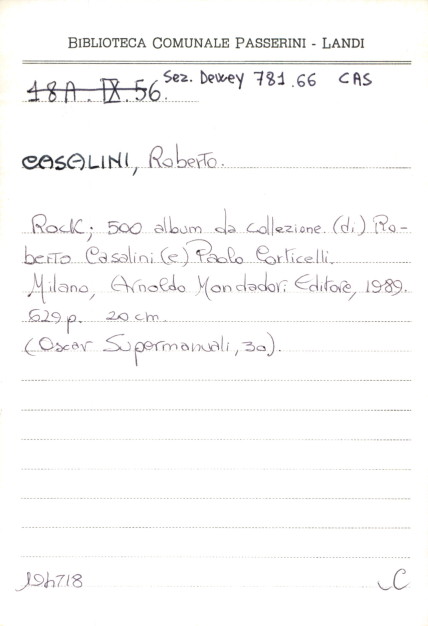 BIBLIOTECA COMUNALE PASSERINI - LANDI
18A. IX. 56. Sez. Dewey 781.66 CAS
CASALINI, Roberto.
Rock; 500 album da collezione. (di) Ro-
berto Casalini (e) Paolo Corticelli.
Milano, Arnoldo Mondadori Editore, 1989.
529 p. 20 cm.
(Oscar Supermanuali, 30).
194718
C